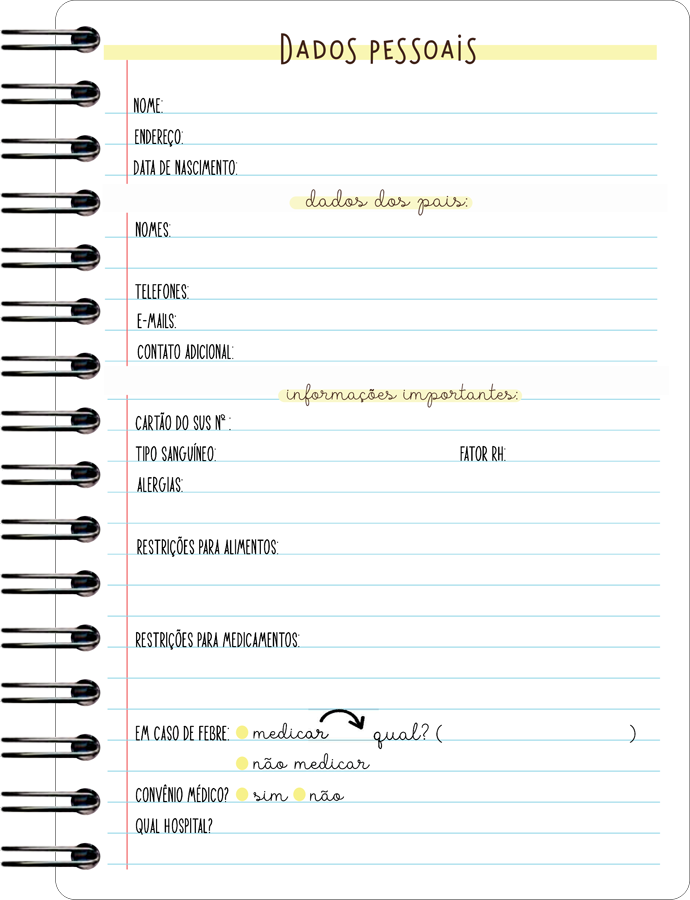 DADOS PESSOAIS
NOME:
ENDEREÇO:
DATA DE NASCIMENTO:
dados dos pais:
NOMES:
TELEFONES:
E-MAILS:
CONTATO ADICIONAL:
informações importantes:
CARTÃO DO SUS Nº :
TIPO SANGUÍNEO: FATOR RH:
ALERGIAS:
RESTRIÇÕES PARA ALIMENTOS:
RESTRIÇÕES PARA MEDICAMENTOS:
EM CASO DE FEBRE: medicar qual? ( )
não medicar
CONVÊNIO MÉDICO? sim não
QUAL HOSPITAL?